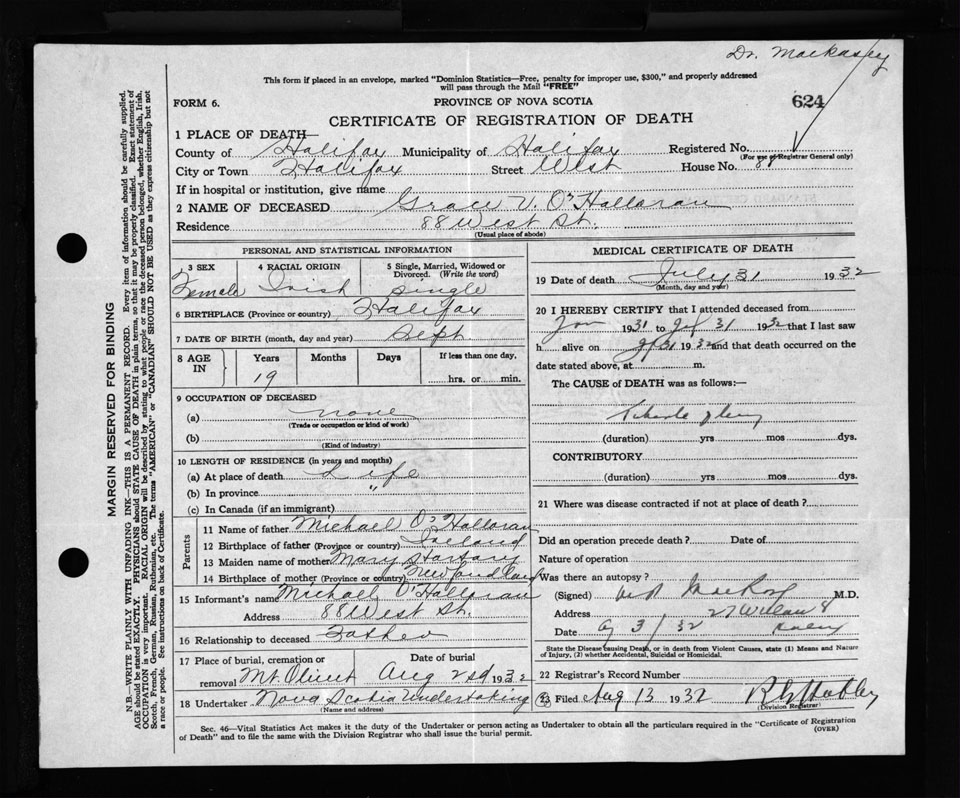 Dr. Mackasey
This form if placed in an envelope, marked "Dominion Statistics—Free, penalty for improper use, $300," and properly addressed
will pass through the Mail "FREE"
FORM 6.
PROVINCE OF NOVA SCOTIA
624
CERTIFICATE OF REGISTRATION OF DEATH
1 PLACE OF DEATH—
County of Halifax Municipality of Halifax Registered No.
(For use of Registrar General only)
City or Town Halifax Street West House No. 88
If in hospital or institution, give name
2 NAME OF DECEASED Grace V. O'Halloran
Residence 88 West St.
(Usual place of abode)
PERSONAL AND STATISTICAL INFORMATION
3 SEX Female
4 RACIAL ORIGIN Irish
5 Single, Married, Widowed or
Divorced. (Write the word)
Single
6 BIRTHPLACE (Province or country) Halifax
7 DATE OF BIRTH (month, day and year) Sept
8 AGE IN Years Months Days If less than one day,
19 hrs. or min.
9 OCCUPATION OF DECEASED
(a) none
(Trade or occupation or kind of work)
(b)
(Kind of industry)
10 LENGTH OF RESIDENCE (in years and months)
(a) At place of death Life
(b) In province "
(c) In Canada (if an immigrant)
Parents
11 Name of father Michael O'Halloran
12 Birthplace of father (Province or country) Ireland
13 Maiden name of mother Mary
14 Birthplace of mother (Province or country) Newfoundland
15 Informant's name Michael O'Halloran
Address 88 West St.
16 Relationship to deceased Father
17 Place of burial, cremation or removal Mt Olivet
Date of burial Aug 2nd 1932
18 Undertaker Nova Scotia Undertaking
(Name and address)
MEDICAL CERTIFICATE OF DEATH
19 Date of death July 31 1932
(Month, day and year)
20 I HEREBY CERTIFY that I attended deceased from
Jan 1931 to Jy 31 1932 that I last saw
h alive on Jy 31 1932 and that death occurred on the
date stated above, at m.
The CAUSE of DEATH was as follows:—
(duration) yrs mos dys.
CONTRIBUTORY
(duration) yrs mos dys.
21 Where was disease contracted if not at place of death?
Did an operation precede death? Date of
Nature of operation
Was there an autopsy?
(Signed) M.D.
Address
Date Ag 3/32
State the Disease causing Death, or in death from Violent Causes, state (1) Means and Nature
of Injury, (2) whether Accidental, Suicidal or Homicidal.
22 Registrar's Record Number
23 Filed Aug 13 1932
(Division Registrar)
Sec. 46—Vital Statistics Act makes it the duty of the Undertaker or person acting as Undertaker to obtain all the particulars required in the "Certificate of Registration
of Death" and to file the same with the Division Registrar who shall issue the burial permit. (OVER)
MARGIN RESERVED FOR BINDING
N.B.—WRITE PLAINLY WITH UNFADING INK—THIS IS A PERMANENT RECORD. Every item of information should be carefully supplied.
AGE should be stated EXACTLY. PHYSICIANS should STATE CAUSE OF DEATH in plain terms, so that it may be properly classified. Exact statement of
OCCUPATION is very important. RACIAL ORIGIN will be described by stating to what people or race the deceased person belonged, whether English, Irish,
Scotch, French, German, Russian, Ruthenian, etc. The terms "AMERICAN" or "CANADIAN" SHOULD NOT BE USED as they express citizenship but not
a race or people. See instructions on back of Certificate.